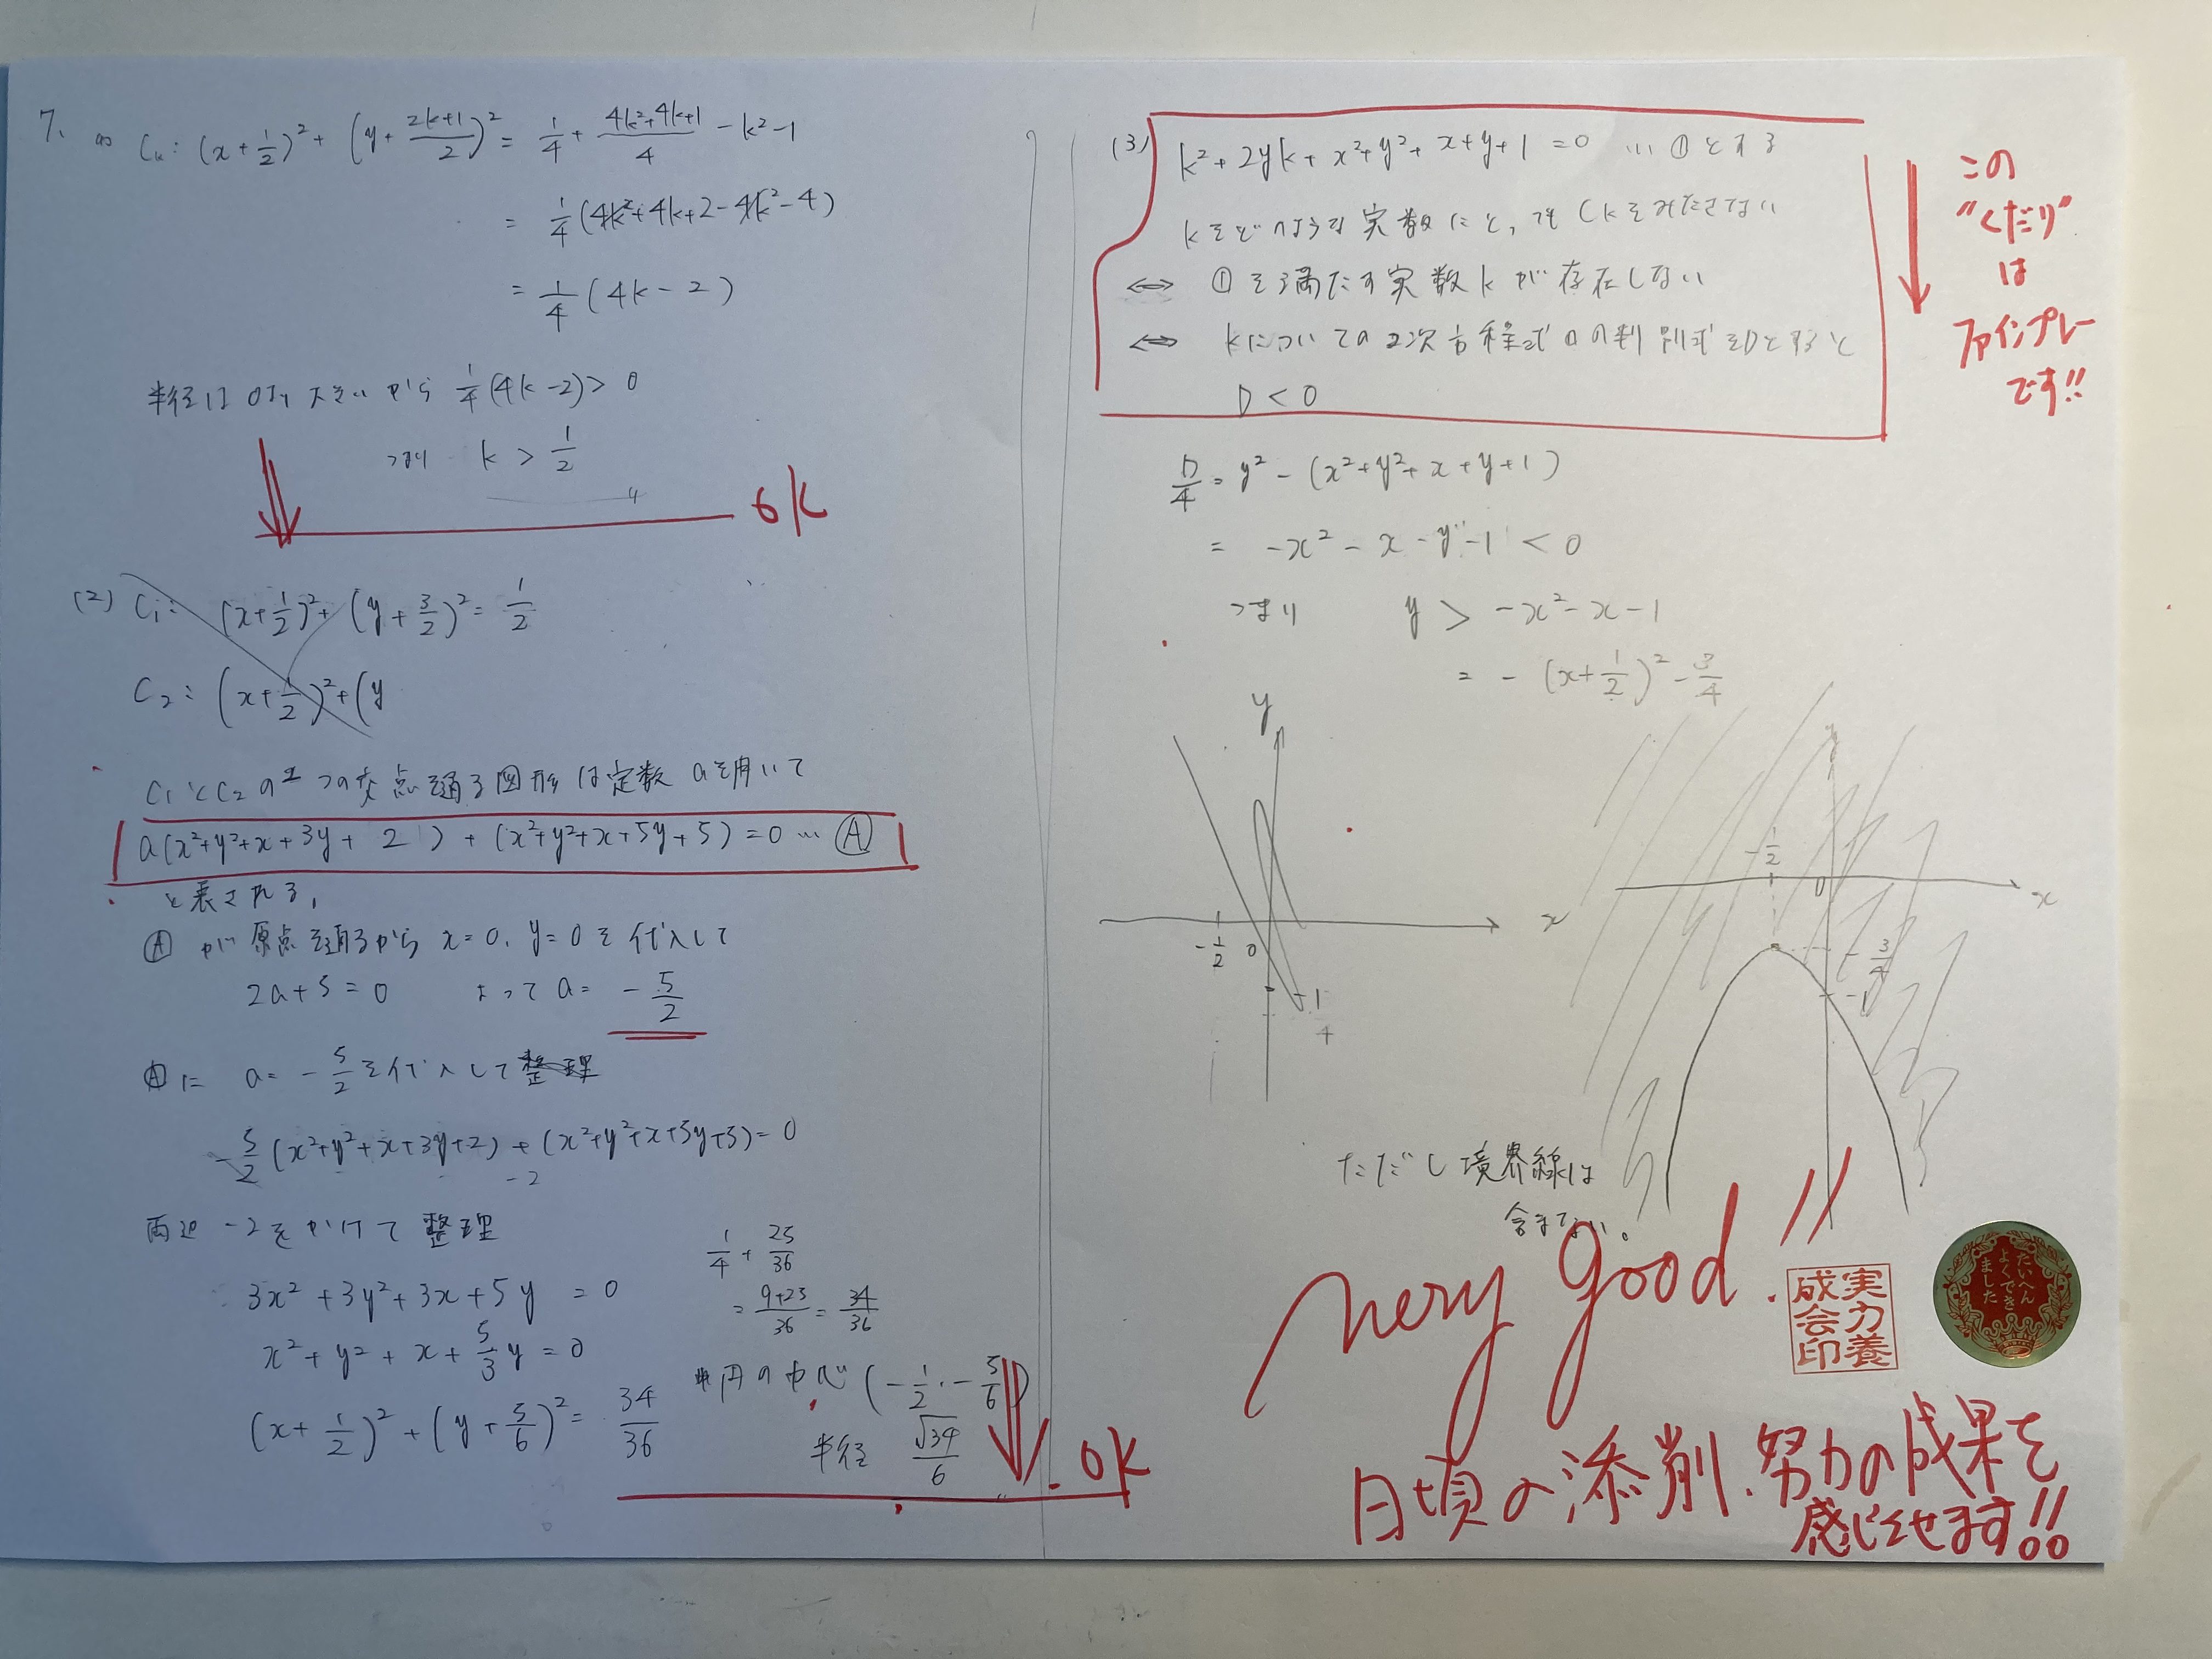 7. (1) Ck: (x+1/2)²+(y+(2k+1)/2)² = 1/4 + (4k²+4k+1)/4 - k²-1
= 1/4(4k²+4k+2-4k²-4)
= 1/4(4k-2)
半径は0より大きいから 1/4(4k-2)>0
つまり k > 1/2
OK
(2) C₁: (x+1/2)²+(y+3/2)²=1/2
C₂: (x+1/2)²+(y
C₁とC₂の2つの交点を通る図形は定数aを用いて
a(x²+y²+x+3y+2)+(x²+y²+x+5y+5)=0 … Ⓐ
と表される,
Ⓐが原点を通るから x=0, y=0を代入して
2a+5=0 よって a=-5/2
Ⓐに a=-5/2を代入して整理
-5/2(x²+y²+x+3y+2)+(x²+y²+x+5y+5)=0
-2
両辺 -2をかけて整理
3x²+3y²+3x+5y =0
x²+y²+x+5/3y=0
(x+1/2)²+(y+5/6)²=34/36
1/4+25/36
=(9+25)/36=34/36
円の中心(-1/2, -5/6)
半径 √34/6
OK
(3) k²+2yk+x²+y²+x+y+1=0 …①とする
kをどのような実数にとってもCkをみたさない
⇔ ①を満たす実数kが存在しない
⇔ kについての2次方程式①の判別式をDとすると
D<0
この
"くだり"
は
ファインプレー
です!!
D/4=y²-(x²+y²+x+y+1)
= -x²-x-y-1<0
つまり y > -x²-x-1
= -(x+1/2)²-3/4
y
x
-1/2
0
-1
4
y
-1/2
0
x
-3/4
-1
ただし境界線は
含まない。
very good!!
実力養
成会印
たいへん
よくでき
ました
日頃の添削、努力の成果を
感じさせます!!